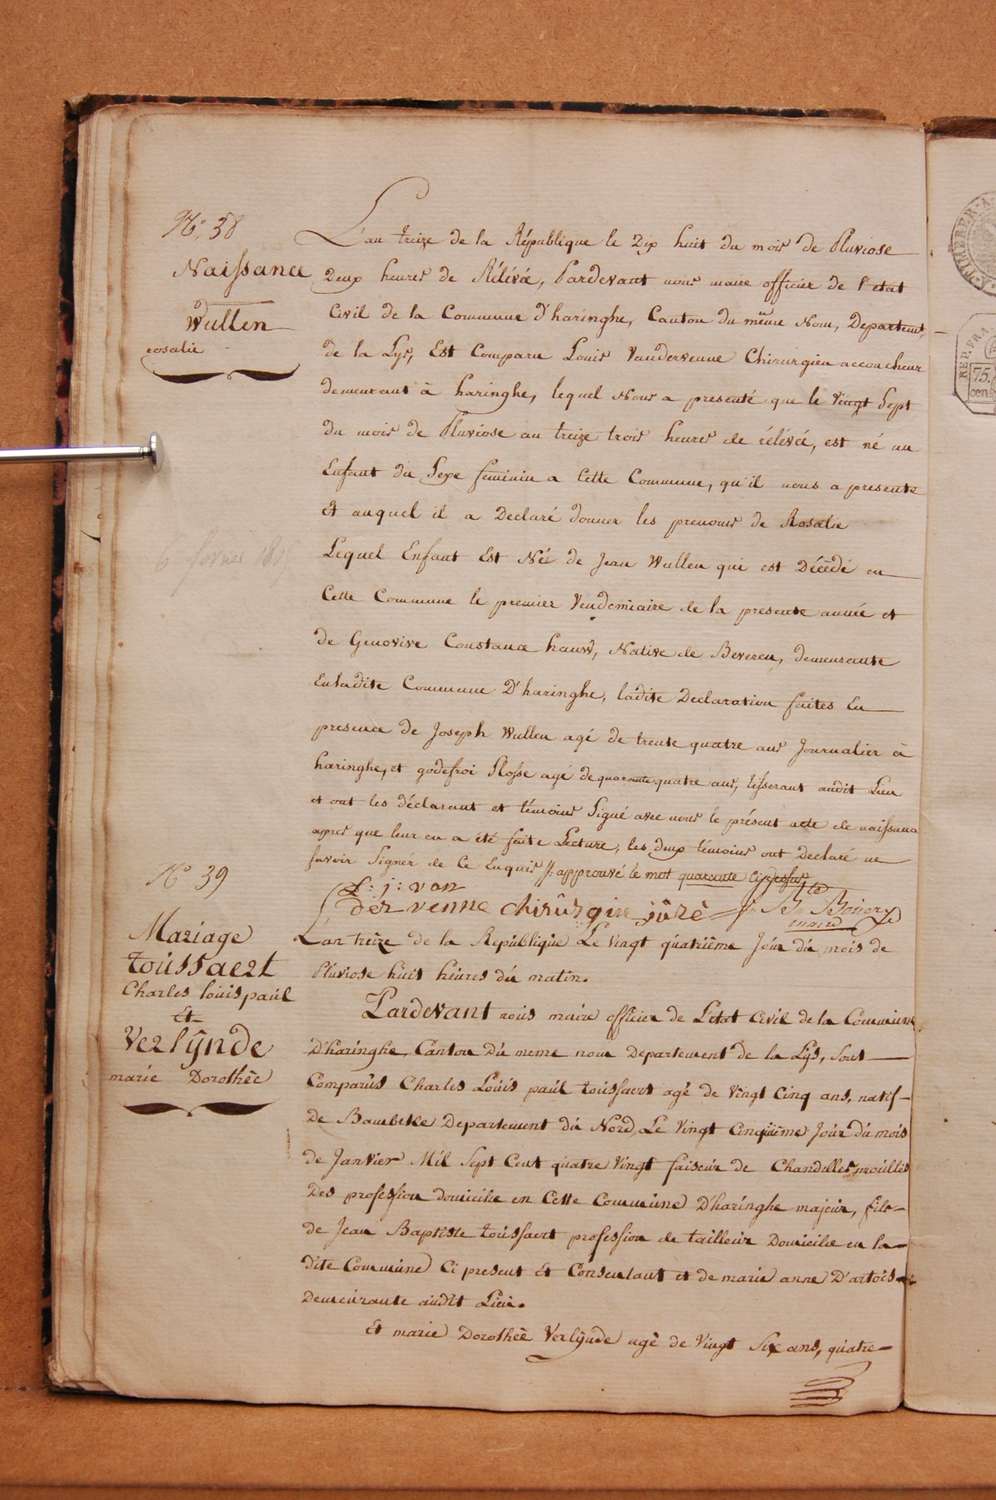 No. 38
Naissance
D
Wullen
rosalie
L'an treize de la République le Dix huit du mois de Pluviose
Deux heures de Rélévé, Pardevant nous maire officier de l'etat
Civil de la Commune D'haringhe, Canton du même Nom, Departemt
de la Lys, Est Comparu Louis Vandervenne Chirurgien accoucheur
demeurant à haringhe, lequel Nous a presenté que le Vingt Sept
du mois de Pluviose an treize trois heures de rélévée, est né un
Enfant du Sexe feminin a Cette Commune, qu'il nous a presenté
Et auquel il a Declaré donner les prenoms de Rosalie
Lequel Enfant Est Née de Jean Wullen qui est Décédé en
Cette Commune le premier Vendemiaire de la presente année et
de Genovive Constance hauw, Native de Beveren, demeurante
Enladite Commune D'haringhe, ladite Declaration faites En
presence de Joseph Wullen agé de trente quatre ans Journalier à
haringhe, et godefroi Plosse agé de quarante quatre ans, tisserant audit Lieu
et ont les déclarant et témoins Signé avec nous le présent acte de naissance
apres que leur en a été faite Lecture, les deux témoins ont Declaré ne
savoir Signér de Ce Enquis //. approuvé le mot quarante ci dessus
L: j: van
der venne chirûrgin jûrè
6 fevrier 180
No 39
Mariage
toussaert
Charles louis paul
Et
Verlÿnde
marie Dorothée
Lan treize de la Republique Le vingt quatrième Jour du mois de
Pluviose huit heures du matin.
Pardevant nous maire officier de Letat Civil de la Commune
D'haringhe, Canton du meme nom departement de la Lys, Sont
Comparus Charles Louis paul toussaert agé de Vingt Cinq ans, natif
de Bambeke Departement du Nord, Le Vingt Cinquième Jour du mois
de Janvier Mil Sept Cent quatre Vingt faiseur de Chandelles moullés
Des profession domicilie en Cette Commune D'haringhe majeur, fils
de Jean Baptiste toussaert profession de tailleur Domicilie en la
dite Commune Ci present Et Consentant et de marie anne D'artois
Demeurante audit Lieu.
Et marie Dorothée Verlÿnde agé de Vingt Six ans, quatre
REP. FRA
75.
cen